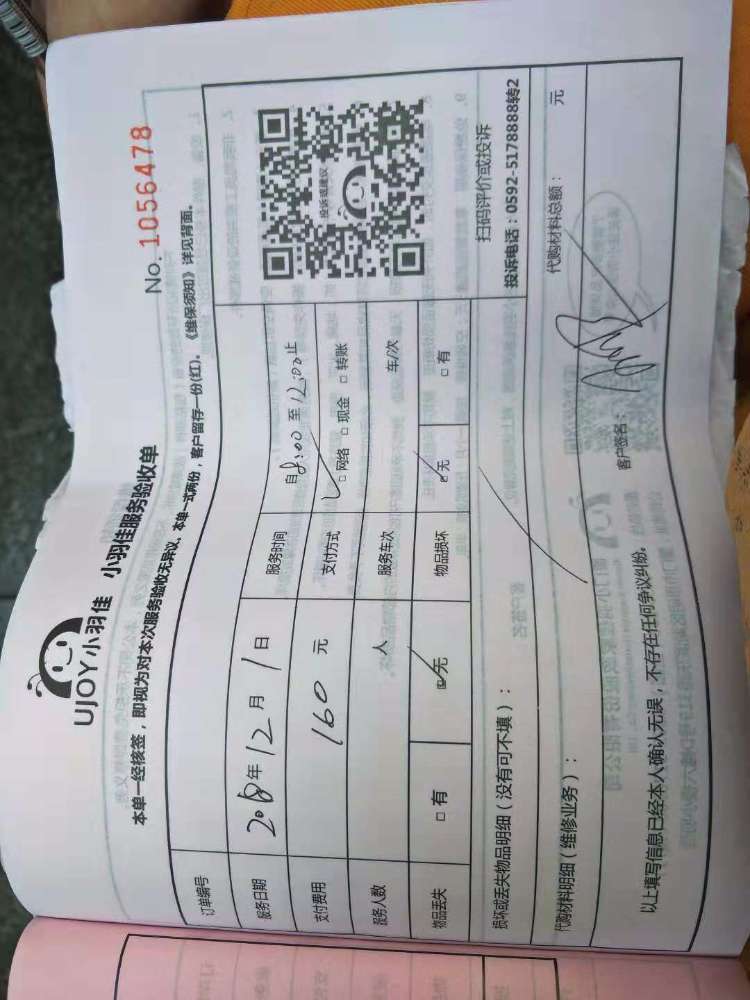 UJOY小羽佳 小羽佳服务验收单
No. 1056478
本单一经核签，即视为对本次服务验收无异议、本单一式两份，客户留存一份(红)。《维保须知》详见背面。
订单编号
服务日期 2018年12月1日 服务时间 自8:00至12:00止
支付费用 160元 支付方式 □网络 □现金 □转账
服务人数 人 服务车次 车/次
物品丢失 □有 □无 物品损坏 □无 □有
投诉或建议
扫码评价或投诉
投诉电话：0592-5178888转2
损坏或丢失物品明细（没有可不填）：
代购材料明细（维修业务）： 代购材料总额： 元
以上填写信息已经本人确认无误，不存在任何争议纠纷。 客户签名：